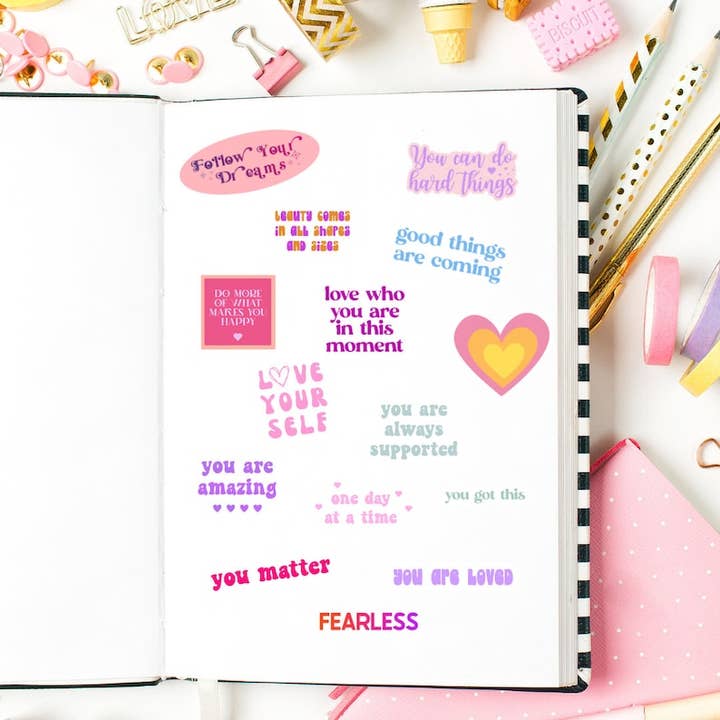 LOVE
BISCUIT
Follow Your
Dreams
You can do
hard things
Beauty comes
in all shapes
and sizes
good things
are coming
DO MORE
OF WHAT
MAKES YOU
HAPPY
love who
you are
in this
moment
LOVE
YOUR
SELF
you are
always
supported
you are
amazing
one day
at a time
you got this
you matter
you are loved
FEARLESS